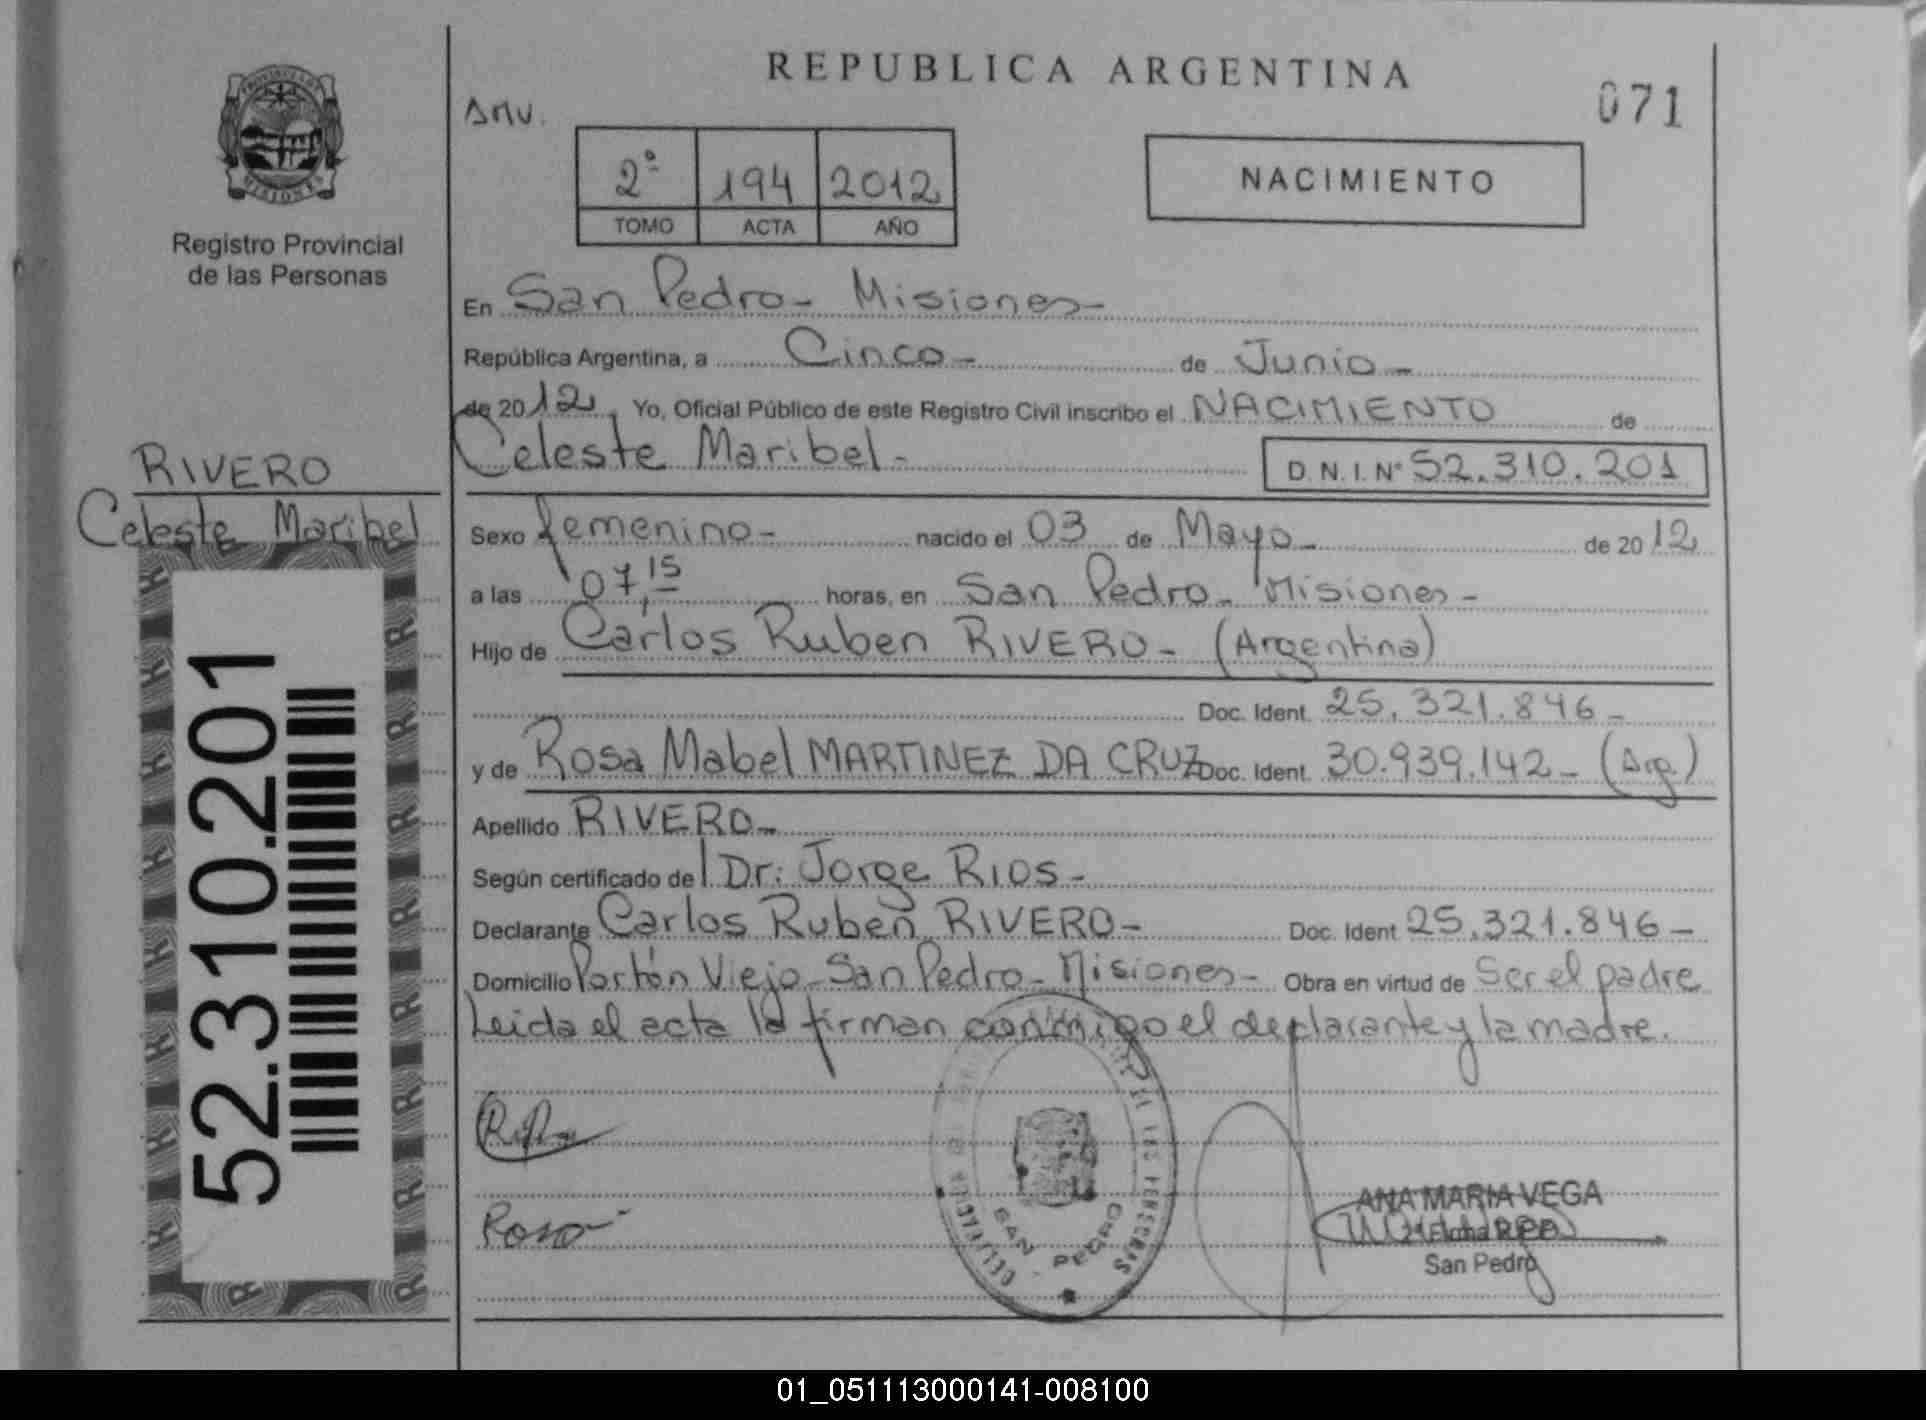 REPUBLICA ARGENTINA
071
PROVINCIA DE MISIONES
Registro Provincial
de las Personas
AMV.
2º 194 2012
TOMO ACTA AÑO
NACIMIENTO
En San Pedro - Misiones -
República Argentina, a Cinco - de Junio -
de 2012, Yo, Oficial Público de este Registro Civil inscribo el NACIMIENTO de
Celeste Maribel - D. N. I. Nº 52.310.201
RIVERO
Celeste Maribel
52.310.201
Sexo femenino - nacido el 03 de Mayo - de 2012
a las 07,15 horas, en San Pedro - Misiones -
Hijo de Carlos Ruben RIVERO - (Argentina)
Doc. Ident. 25.321.846 -
y de Rosa Mabel MARTINEZ DA CRUZ Doc. Ident. 30.939.142 - (Arg.)
Apellido RIVERO -
Según certificado del Dr: Jorge RIOS -
Declarante Carlos Ruben RIVERO - Doc. Ident 25.321.846 -
Domicilio Portón Viejo - San Pedro - Misiones - Obra en virtud de Ser el padre
Leida el acta la firman conmigo el declarante y la madre.
Rosa
SAN PEDRO
ANA MARIA VEGA
San Pedro
01_051113000141-008100